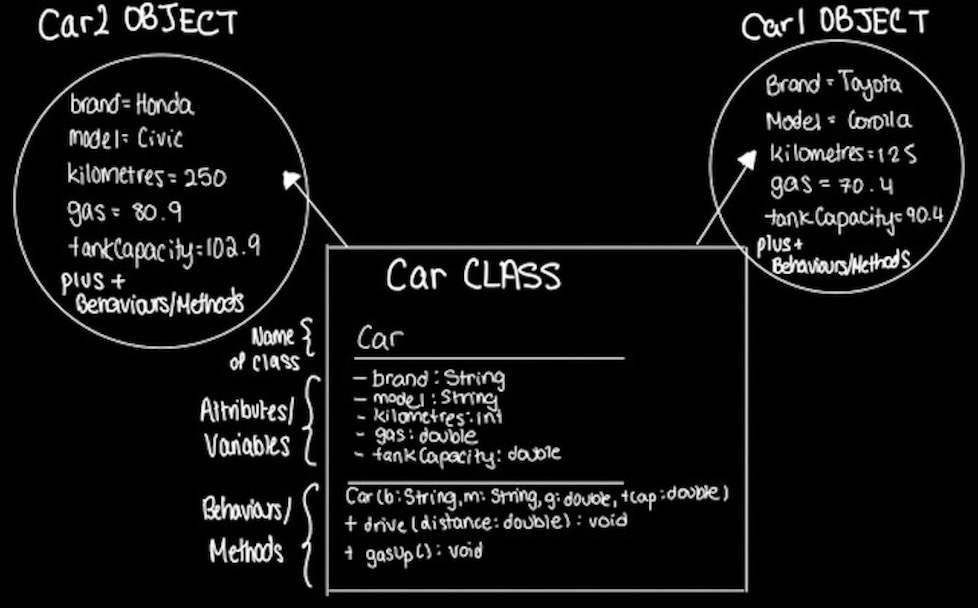 Car2 OBJECT
brand=Honda
model=Civic
kilometres=250
gas=80.9
tankCapacity=102.9
plus+
Behaviours/Methods
Car1 OBJECT
Brand=Toyota
Model=Corolla
kilometres=125
gas=70.4
tankCapacity=90.4
plus+
Behaviours/Methods
Car CLASS
Name
of class
Car
Attributes/
Variables
- brand: String
- model: String
- kilometres: int
- gas: double
- tankCapacity: double
Behaviors/
Methods
Car(b: String, m: String, g: double, tcap: double)
+ drive(distance: double): void
+ gasUp(): void